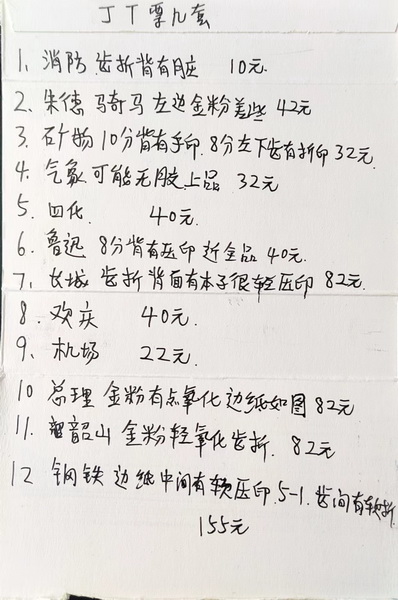 JT票几套
1、消防 齿折背有脏 10元.
2、朱德 骑马 左边金粉差些 42元
3、矿物 10分背有手印. 8分左下齿有折印 32元.
4、气象 可能无胶上品 32元
5、四化 40元.
6、鲁迅 8分背有压印 近全品 40元.
7、长城 齿折 背面有本子很轻压印 82元.
8、欢庆 40元.
9、机场 22元.
10 总理 金粉有点氧化 边纸如图 82元
11. 韶山 金粉轻氧化齿折. 82元
12 钢铁 边纸中间有软压印. 5-1. 齿间有软折
155元